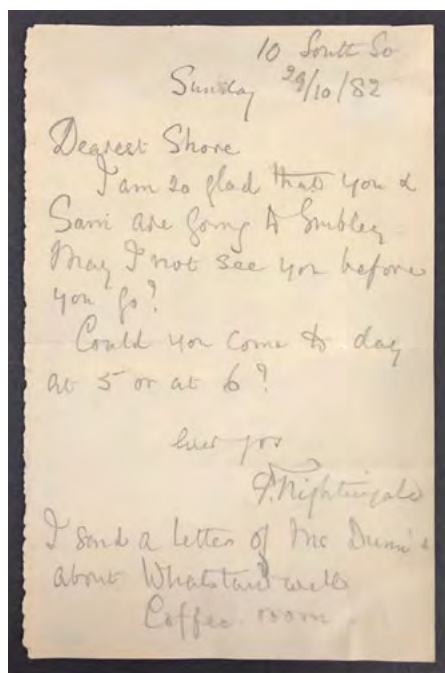 10 South St
Sunday 29/10/82
Dearest Shore
I am so glad that you &
Sam are going to Embley
May I not see you before
you go?
Could you come to day
at 5 or at 6?
ever yrs
F. Nightingale
I send a letter of Mr Dunn's
about Whatstandwell
Coffee room